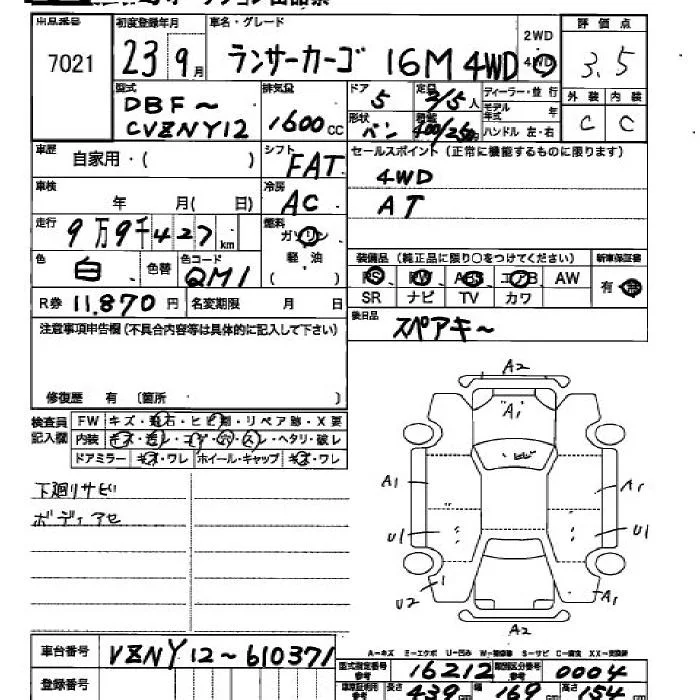 出品番号 初度登録年月 車名・グレード 評価点
7021 23 9月 ランサーカーゴ 16M 4WD 2WD 4WD 3.5
型式 排気量 ドア 定員 ディーラー・並行 外装 内装
DBF~ CVZNY12 1600cc 5 2/5人 モデル年式 年 C C
形状 バン 積載 400/250 ハンドル 左・右
車歴 自家用・( ) シフト FAT セールスポイント (正常に機能するものに限ります)
車検 年 月( 日) 冷房 AC 4WD
AT
走行 9万9千427km 燃料 ガソリン・軽油
( )
色 白 色替 色コード QM1 装備品 (純正品に限り○をつけてください) 新車保証書
PS PW ABS エアB AW 有・無
R券 11,870円 名変期限 月 日 SR ナビ TV カワ
注意事項申告欄(不具合内容等は具体的に記入して下さい) 後日品 スペアキー
修復歴 有 〔箇所 〕
検査員記入欄 FW キズ・飛石・ヒビ割・リペア跡・X要
内装 キズ・汚レ・コゲ・穴・スレ・ヘタリ・破レ
ドアミラー キズ・ワレ ホイール・キャップ キズ・ワレ
下廻リサビ
ボディアセ
A2
"A1
ヒビ
A1 A1
U1 U1
U2 1 A1
A2
A-キズ E-エクボ U-凹み W-補修跡 S-サビ C-腐食 XX-交換済
車台番号 VZNY12~610371 型式指定番号 参考 16212 類別区分番号 参考 0004
登録番号 車庫証明用 参考 長さ 439cm 幅 169cm 高さ 154cm